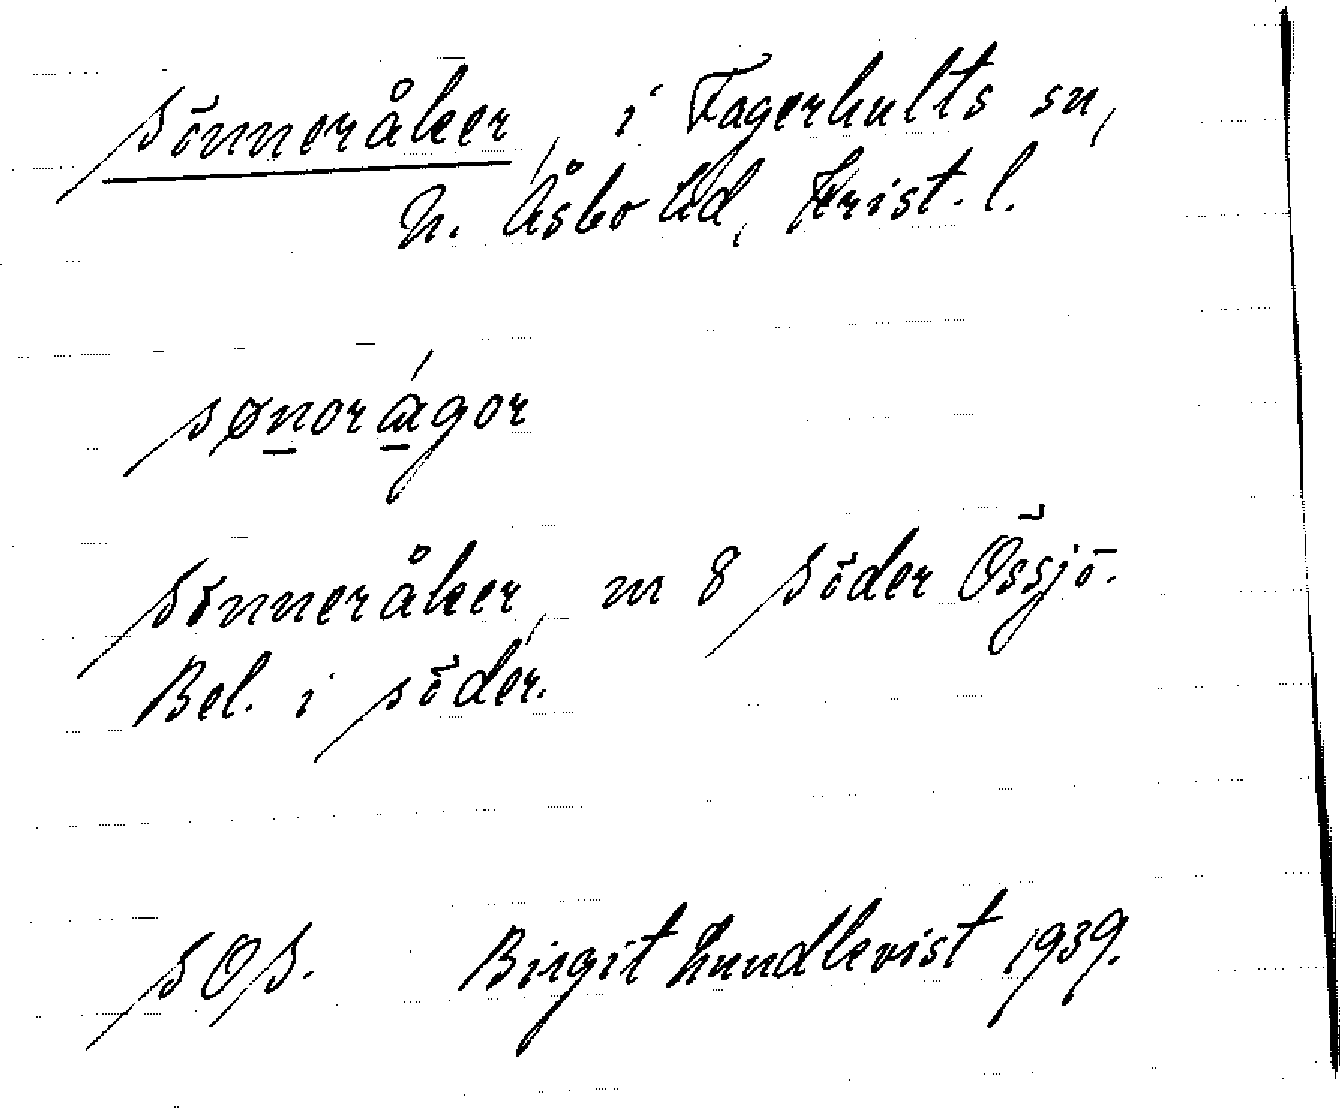 Sönneråker, i Fagerhults sn,
N. Åsbo hd, Krist. l.
sønorágor
Sönneråker, m 8 Söder Össjö.
Bel. i söder.
SOS. Birgit Lundkvist 1939.